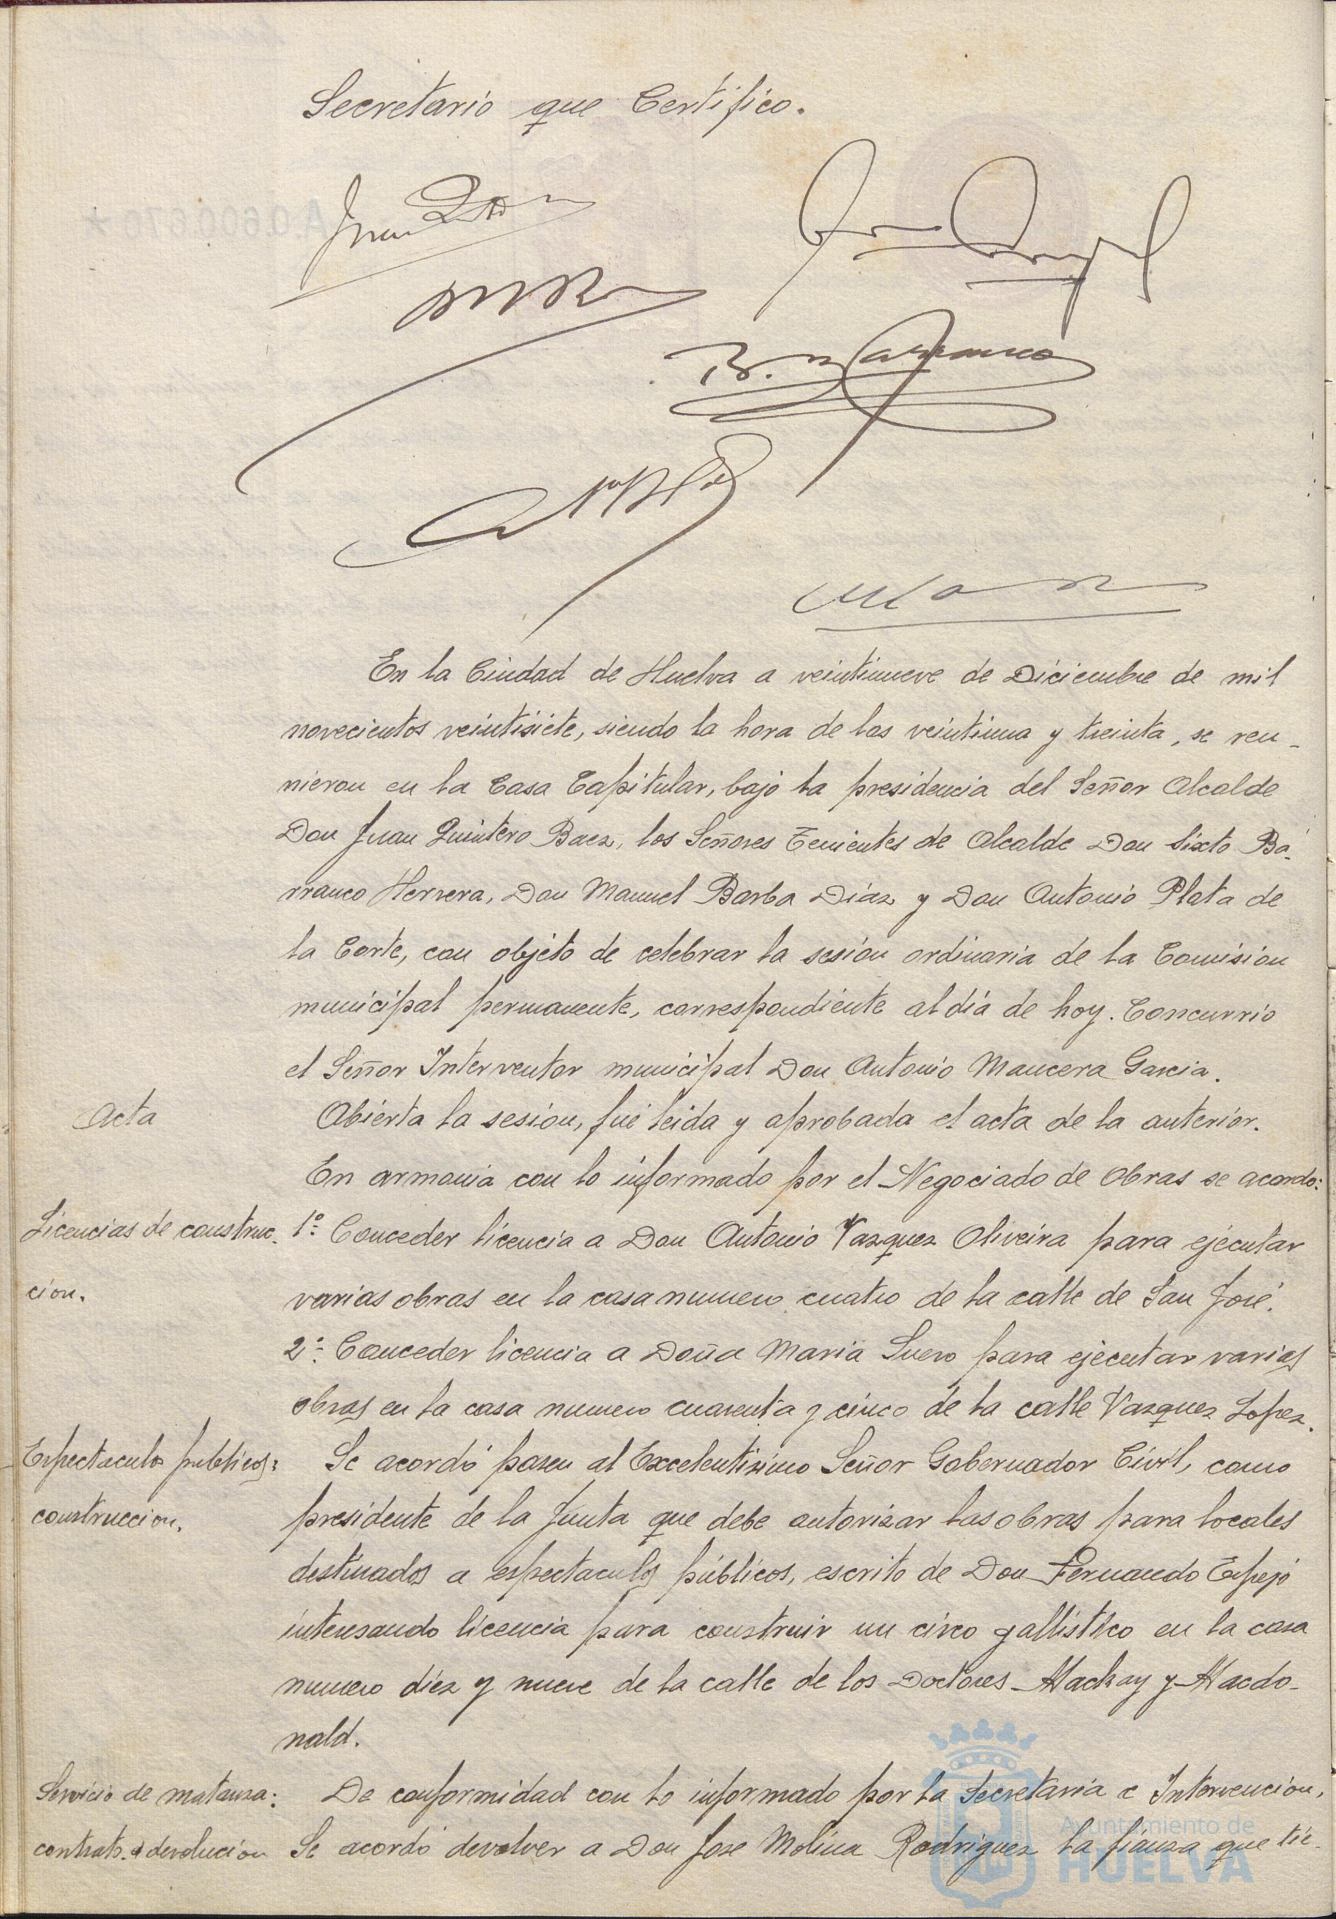 Secretario que Certifico.
B. Barranco
En la Ciudad de Huelva a veintinueve de Diciembre de mil
novecientos veintisiete, siendo la hora de las veintiuna y treinta, se reu-
nieron en la Casa Capitular, bajo la presidencia del Señor Alcalde
Don Juan Quintero Baez, los Señores Tenientes de Alcalde Don Sixto Ba-
rranco Herrera, Don Manuel Barba Diaz y Don Antonio Plata de
la Corte, con objeto de celebrar la sesion ordinaria de la Comision
municipal permanente, correspondiente al dia de hoy. Concurrio
el Señor Interventor municipal Don Antonio Mancera Garcia.
Acta
Abierta la sesion, fué leida y aprobada el acta de la anterior.
En armonia con lo informado por el Negociado de Obras se acordo:
Licencias de construc-
cion.
1º Conceder licencia a Don Antonio Vazquez Oliveira para ejecutar
varias obras en la casa numero cuatro de la calle de San José.
2º Conceder licencia a Doña Maria Suero para ejecutar varias
obras en la casa numero cuarenta y cinco de la calle Vazquez Lopez.
Espectaculos publicos:
construccion.
Se acordó pasen al Excelentisimo Señor Gobernador Civil, como
presidente de la Junta que debe autorizar las obras para locales
destinados a espectaculos públicos, escrito de Don Fernando Espejo
intensando licencia para construir un circo gallistico en la casa
numero diez y nueve de la calle de los Doctores Mackay y Macdo-
nald.
Servicio de matanza:
contrato. devolucion
De conformidad con lo informado por la Secretaria e Intervencion,
Se acordó devolver a Don Jose Molina Rodriguez la fianza que tie-
Ayuntamiento de
HUELVA